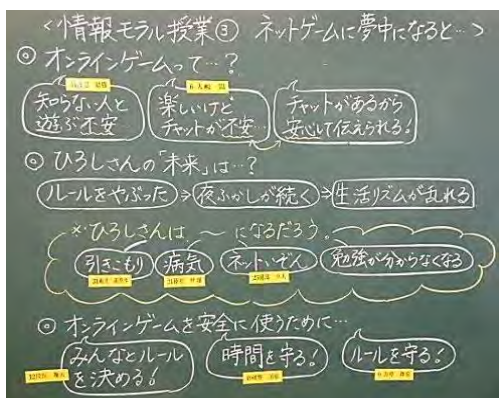 <情報モラル授業③ ネットゲームに夢中になると…>
◎ オンラインゲームって…?
知らない人と
遊ぶ不安
楽しいけど
チャットが不安…
チャットがあるから
安心して伝えられる!
◎ ひろしさんの「未来」は…?
ルールをやぶった → 夜ふかしが続く → 生活リズムが乱れる
×・ひろしさんは、〜になるだろう。
引きこもり 病気 ネットいぞん 勉強が分からなくなる
◎ オンラインゲームを安全に使うために…
みんなとルール
を決める!
時間を守る!
ルールを守る!